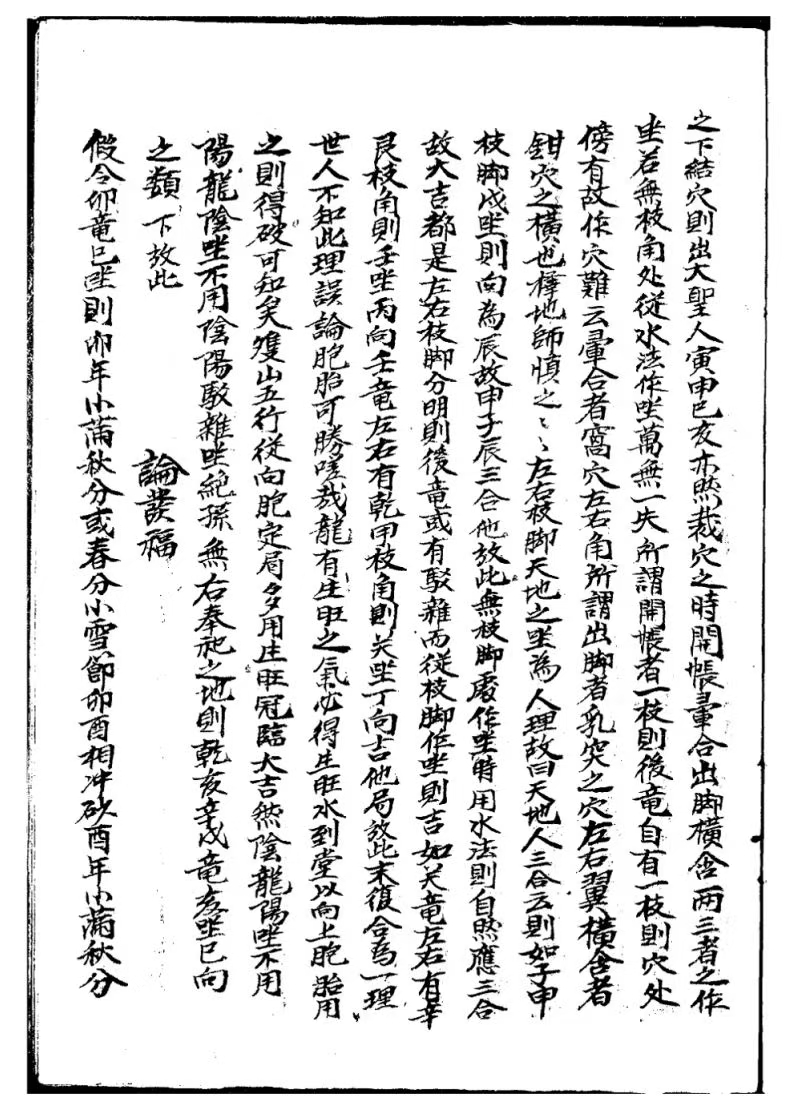 之下結穴則出大聖人寅申巳亥亦然裁穴之時開帳暈合出脚橫含兩三者之作
坐若無枝角处從水法作坐萬無一失所謂開帳者一枝則後竜自有一枝則穴处
傍有故作穴難云暈合者窩穴左右角所謂出脚者乳突之穴左右翼橫含者
鉗穴之橫也擇地師慎之〻左右枝脚天地之坐為人理故曰天地人三合云則如子申
枝脚戌坐則向為辰故申子辰三合他放此無枝脚處作坐時用水法則自然應三合
故大吉都是左右枝脚分明則後竜或有駁雜而從枝脚作坐則吉如关竜左右有辛
艮枝角則壬坐丙向壬竜左右有乾甲枝角則关坐丁向吉他局放此末復合為一理
世人不知此理誤論胞胎可勝嗟哉龍有生旺之氣必得生旺水到堂以向上胞胎用
之則得破可知矣雙山五行從向胞定局多用生旺冠臨大吉然陰龍陽坐不用
陽龍陰坐不用陰陽駁雜坐絶孫無右奉祀之地則乾亥辛戌竜亥坐巳向
之類下放此
論發福
假令卯竜巳坐則卯年小滿秋分或春分小雪節卯酉相冲砂酉年小滿秋分